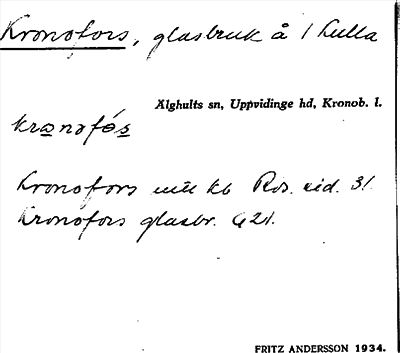 Kronofors, glasbruk å 1 hulla
Älghults sn, Uppvidinge hd, Kronob. l.
kronofós
Kronofors
Kronofors glasbr. G 21.
FRITZ ANDERSSON 1934.